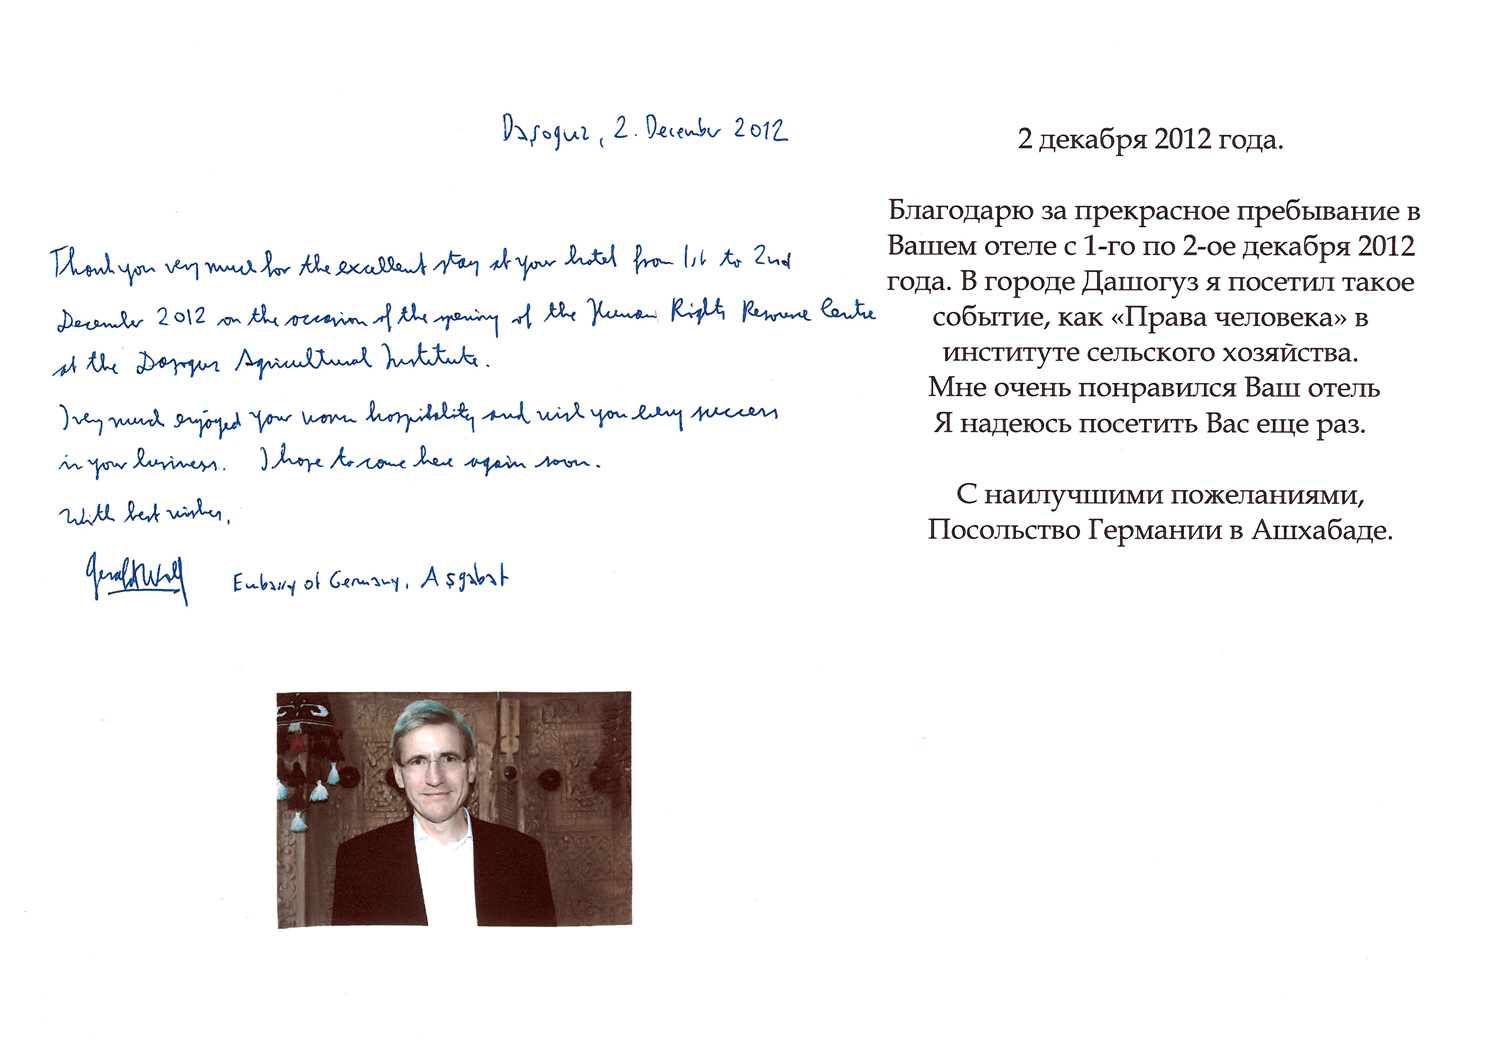 Daşoguz, 2. December 2012
Thank you very much for the excellent stay at your hotel from 1st to 2nd
December 2012 on the occasion of the opening of the Human Rights Resource Centre
at the Daşoguz Agricultural Institute.
I very much enjoyed your warm hospitality and wish you every success
in your business. I hope to come here again soon.
With best wishes,
Gerald Wolf Embassy of Germany, Aşgabat
2 декабря 2012 года.
Благодарю за прекрасное пребывание в
Вашем отеле с 1-го по 2-ое декабря 2012
года. В городе Дашогуз я посетил такое
событие, как «Права человека» в
институте сельского хозяйства.
Мне очень понравился Ваш отель
Я надеюсь посетить Вас еще раз.
С наилучшими пожеланиями,
Посольство Германии в Ашхабаде.